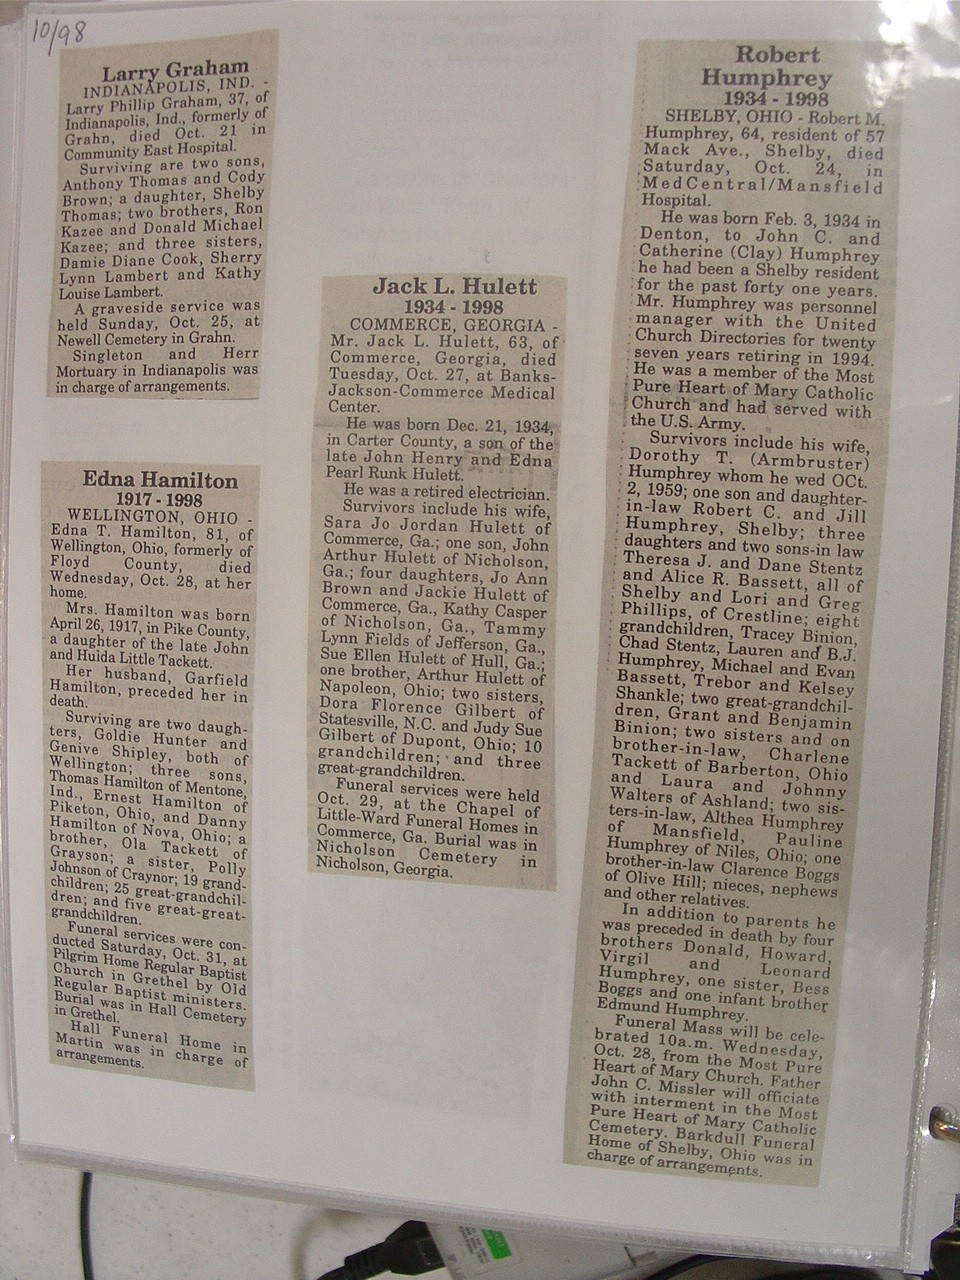 10/98
Larry Graham
INDIANAPOLIS, IND. -
Larry Phillip Graham, 37, of
Indianapolis, Ind., formerly of
Grahn, died Oct. 21 in
Community East Hospital.
Surviving are two sons,
Anthony Thomas and Cody
Brown; a daughter, Shelby
Thomas; two brothers, Ron
Kazee and Donald Michael
Kazee; and three sisters,
Damie Diane Cook, Sherry
Lynn Lambert and Kathy
Louise Lambert.
A graveside service was
held Sunday, Oct. 25, at
Newell Cemetery in Grahn.
Singleton and Herr
Mortuary in Indianapolis was
in charge of arrangements.
Edna Hamilton
1917 - 1998
WELLINGTON, OHIO -
Edna T. Hamilton, 81, of
Wellington, Ohio, formerly of
Floyd County, died
Wednesday, Oct. 28, at her
home.
Mrs. Hamilton was born
April 26, 1917, in Pike County,
a daughter of the late John
and Huida Little Tackett.
Her husband, Garfield
Hamilton, preceded her in
death.
Surviving are two daugh-
ters, Goldie Hunter and
Genive Shipley, both of
Wellington; three sons,
Thomas Hamilton of Mentone,
Ind., Ernest Hamilton of
Piketon, Ohio, and Danny
Hamilton of Nova, Ohio; a
brother, Ola Tackett of
Grayson; a sister, Polly
Johnson of Craynor; 19 grand-
children; 25 great-grandchil-
dren; and five great-great-
grandchildren.
Funeral services were con-
ducted Saturday, Oct. 31, at
Pilgrim Home Regular Baptist
Church in Grethel by Old
Regular Baptist ministers.
Burial was in Hall Cemetery
in Grethel.
Hall Funeral Home in
Martin was in charge of
arrangements.
Jack L. Hulett
1934 - 1998
COMMERCE, GEORGIA -
Mr. Jack L. Hulett, 63, of
Commerce, Georgia, died
Tuesday, Oct. 27, at Banks-
Jackson-Commerce Medical
Center.
He was born Dec. 21, 1934,
in Carter County, a son of the
late John Henry and Edna
Pearl Runk Hulett.
He was a retired electrician.
Survivors include his wife,
Sara Jo Jordan Hulett of
Commerce, Ga.; one son, John
Arthur Hulett of Nicholson,
Ga.; four daughters, Jo Ann
Brown and Jackie Hulett of
Commerce, Ga., Kathy Casper
of Nicholson, Ga., Tammy
Lynn Fields of Jefferson, Ga.,
Sue Ellen Hulett of Hull, Ga.;
one brother, Arthur Hulett of
Napoleon, Ohio; two sisters,
Dora Florence Gilbert of
Statesville, N.C. and Judy Sue
Gilbert of Dupont, Ohio; 10
grandchildren; and three
great-grandchildren.
Funeral services were held
Oct. 29, at the Chapel of
Little-Ward Funeral Homes in
Commerce, Ga. Burial was in
Nicholson Cemetery in
Nicholson, Georgia.
Robert
Humphrey
1934 - 1998
SHELBY, OHIO - Robert M.
Humphrey, 64, resident of 57
Mack Ave., Shelby, died
Saturday, Oct. 24, in
MedCentral/Mansfield
Hospital.
He was born Feb. 3, 1934 in
Denton, to John C. and
Catherine (Clay) Humphrey
he had been a Shelby resident
for the past forty one years.
Mr. Humphrey was personnel
manager with the United
Church Directories for twenty
seven years retiring in 1994.
He was a member of the Most
Pure Heart of Mary Catholic
Church and had served with
the U.S. Army.
Survivors include his wife,
Dorothy T. (Armbruster)
Humphrey whom he wed OCt.
2, 1959; one son and daughter-
in-law Robert C. and Jill
Humphrey, Shelby; three
daughters and two sons-in law
Theresa J. and Dane Stentz
and Alice R. Bassett, all of
Shelby and Lori and Greg
Phillips, of Crestline; eight
grandchildren, Tracey Binion,
Chad Stentz, Lauren and B.J.
Humphrey, Michael and Evan
Bassett, Trebor and Kelsey
Shankle; two great-grandchil-
dren, Grant and Benjamin
Binion; two sisters and on
brother-in-law, Charlene
Tackett of Barberton, Ohio
and Laura and Johnny
Walters of Ashland; two sis-
ters-in-law, Althea Humphrey
of Mansfield, Pauline
Humphrey of Niles, Ohio; one
brother-in-law Clarence Boggs
of Olive Hill; nieces, nephews
and other relatives.
In addition to parents he
was preceded in death by four
brothers Donald, Howard,
Virgil and Leonard
Humphrey, one sister, Bess
Boggs and one infant brother
Edmund Humphrey.
Funeral Mass will be cele-
brated 10a.m. Wednesday,
Oct. 28, from the Most Pure
Heart of Mary Church. Father
John C. Missler will officiate
with interment in the Most
Pure Heart of Mary Catholic
Cemetery. Barkdull Funeral
Home of Shelby, Ohio was in
charge of arrangements.